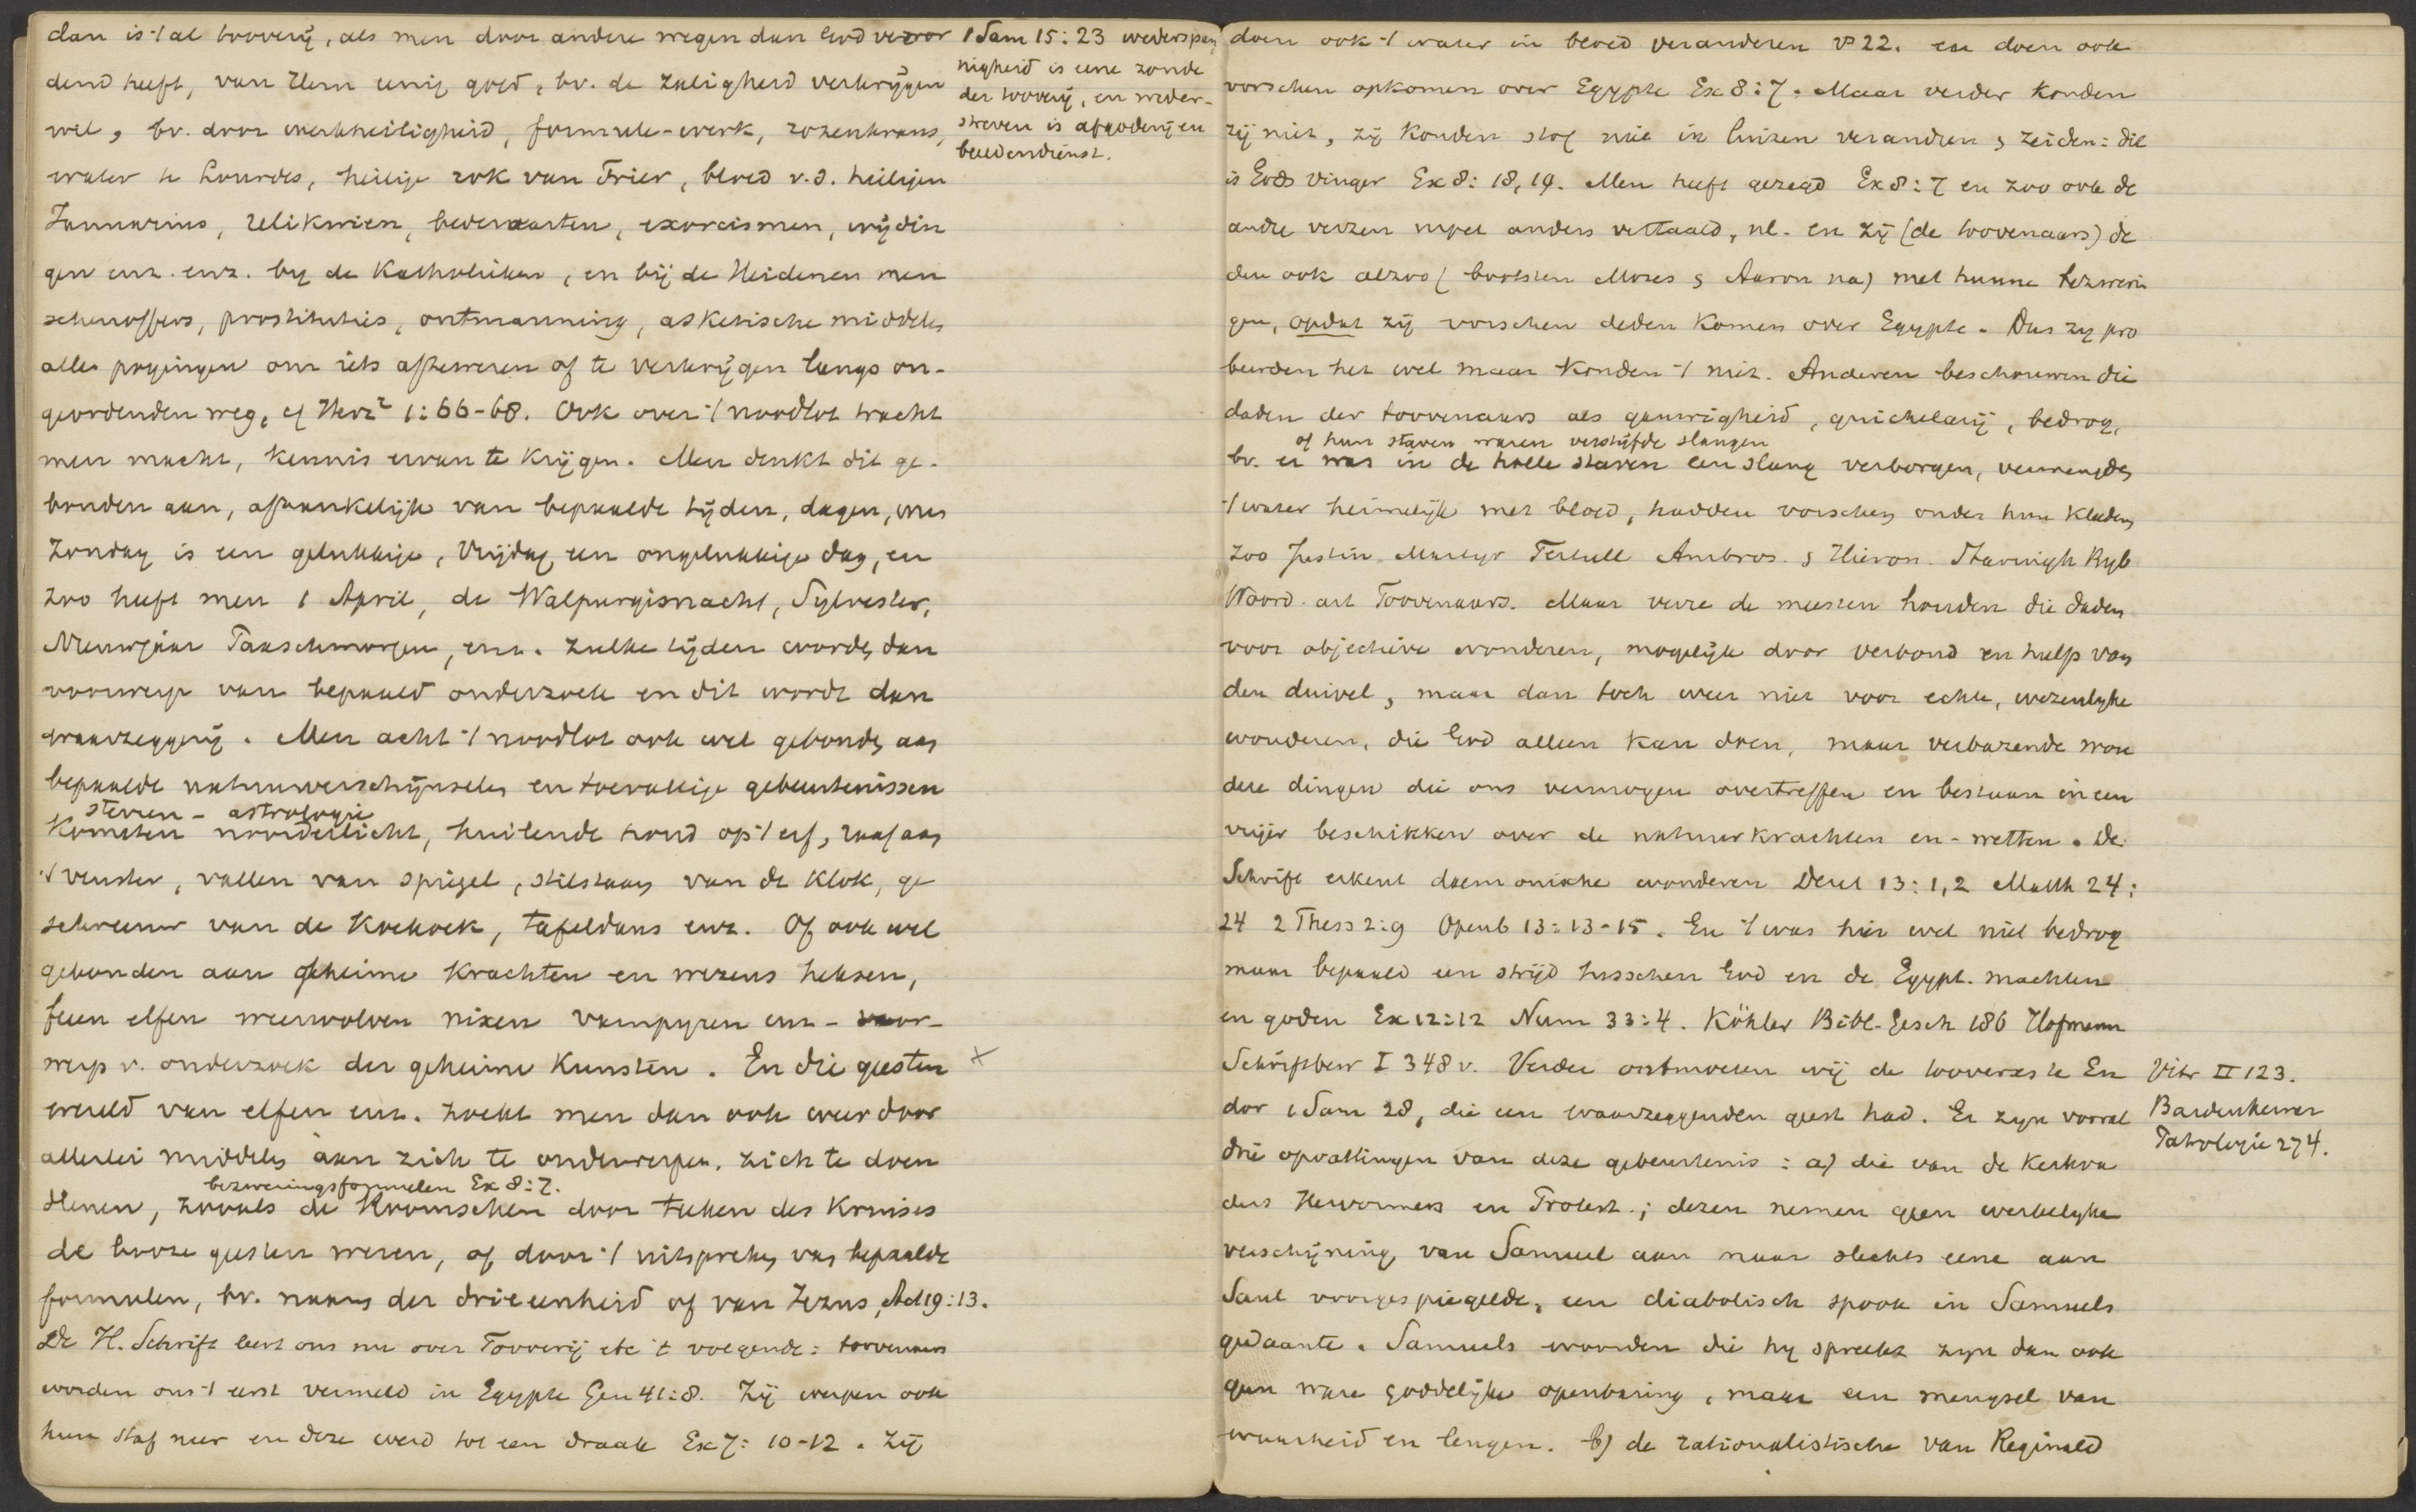 dan is 't al tooverij, als men door andere wegen dan God veror
dend heeft, van Hem eenig goed, bv. de zaligheid verkrijgen
wil, bv. door werkheiligheid, formule-werk, rozenkrans,
water te Lourdes, heilige rok van Trier, bloed v.d. heiligen
Januarius, relikwien, bedevaarten, exorcismen, wijdin
gen enz. enz. by de Katholieken, en bij de Heidenen men
schenoffers, prostituties, ontmanning, asketische middelen
alles pogingen om iets afteweren of te verkrijgen langs on-
geordenden weg, cf Herz² 1:66-68. Ook over 't noodlot tracht
men macht, kennis ervan te krijgen. Men denkt dit ge-
bonden aan, afhankelijk van bepaalde tijden, dagen, uren
Zondag is een gelukkige, Vrijdag een ongelukkige dag, en
zoo heeft men 1 April, de Walpurgisnacht, Sylvester,
Nieuwjaar Paaschmorgen, enz. zulke tijden worden dan
voorwerp van bepaald onderzoek en dit wordt dan
waarzeggerij. Men acht 't noodlot ook wel gebonden aan
bepaalde natuurverschijnselen en toevallige gebeurtenissen
sterren - astrologie
Kometen noorderlicht, huilende hond op 't erf, raaf aan
't venster, vallen van spiegel, stilstaan van de klok, ge
schreeuw van de Koekoek, tafeldans enz. Of ook wel
gebonden aan geheime krachten en wezens heksen,
feen elfen weerwolven nixen vampyren enz - voor-
werp v. onderzoek der geheime Kunsten. En die geesten
wereld van elfen enz. zoekt men dan ook weer door
allerlei middelen aan zich te onderwerpen, zich te doen
bezweringsformulen Ex 8:7.
dienen, zooals de Roomschen door teeken des Kruises
de booze geesten weren, of door 't uitspreken van bepaalde
formulen, bv. naam der drieeenheid of van Jezus, Act 19:13.
De H. Schrift leert ons nu over Tooverij etc 't volgende: toovenaars
worden ons 't eerst vermeld in Egypte Gen 41:8. Zij werpen ook
hun staf neer en deze werd tot een draak Ex 7:10-12. Zij
1 Sam 15:23 wederspan
nigheid is eene zonde
der toovery, en weder-
streven is afgoderij en
beeldendienst.
doen ook 't water in bloed veranderen vs 22. en doen ook
vorschen opkomen over Egypte Ex 8:7. Maar verder konden
zij niet, zij konden stof niet in luizen verandren & zeiden: dit
is Gods vinger Ex 8:18,19. Men heeft gezegd Ex 8:7 en zoo ook de
andre verzen moet anders vertaald, nl. en zij (de toovenaars) de
den ook alzoo (bootsten Mozes & Aaron na) met hunne bezwerin
gen, opdat zij vorschen deden komen over Egypte. Dus zy pro
beerden het wel maar konden 't niet. Anderen beschouwen die
daden der toovenaars als gauwigheid, guichelarij, bedrog,
of hun staven waren verstijfde slangen
bv. er was in de holle staven een slang verborgen, vermengden
't water heimelijk met bloed, hadden vorschen onder hun kleeden
zoo Justin. Martyr Tertull Ambros. & Hieron. Bijb
Woord. art Toovenaars. Maar verre de meesten houden die daden
voor objectieve wonderen, mogelijk door verbond en hulp van
den duivel, maar dan toch weer niet voor echte, wezenlyke
wonderen, die God alleen kan doen, maar verbazende won
dere dingen die ons vermogen overtreffen en bestaan in een
vrijer beschikken over de natuurkrachten en -wetten. De
Schrift erkent daemonische wonderen Deut 13:1,2 Matth 24:
24 2 Thess 2:9 Openb 13:13-15. En 't was hier wel niet bedrog
maar bepaald een strijd tusschen God en de Egypt. machten
en goden Ex 12:12 Num 33:4. Köhler Bibl. Gesch 186 Hofmann
Schriftbew I 348 v. Verder ontmoeten wij de tooveres te En
dor 1 Sam 28, die een waarzeggenden geest had. Er zyn vooral
drie opvattingen van deze gebeurtenis: a) die van de Kerkva
ders Hervormers en Protest.; dezen nemen geen werkelyke
verschijning van Samuel aan maar slechts eene aan
Saul voorgespiegelde, een diabolisch spook in Samuels
gedaante. Samuels woorden die hy spreekt zyn dan ook
geen ware goddelijke openbaring, maar een mengsel van
waarheid en leugen. b) de rationalistische van Reginald
Vitr II 123.
Bardenhewer
Patrologie 274.